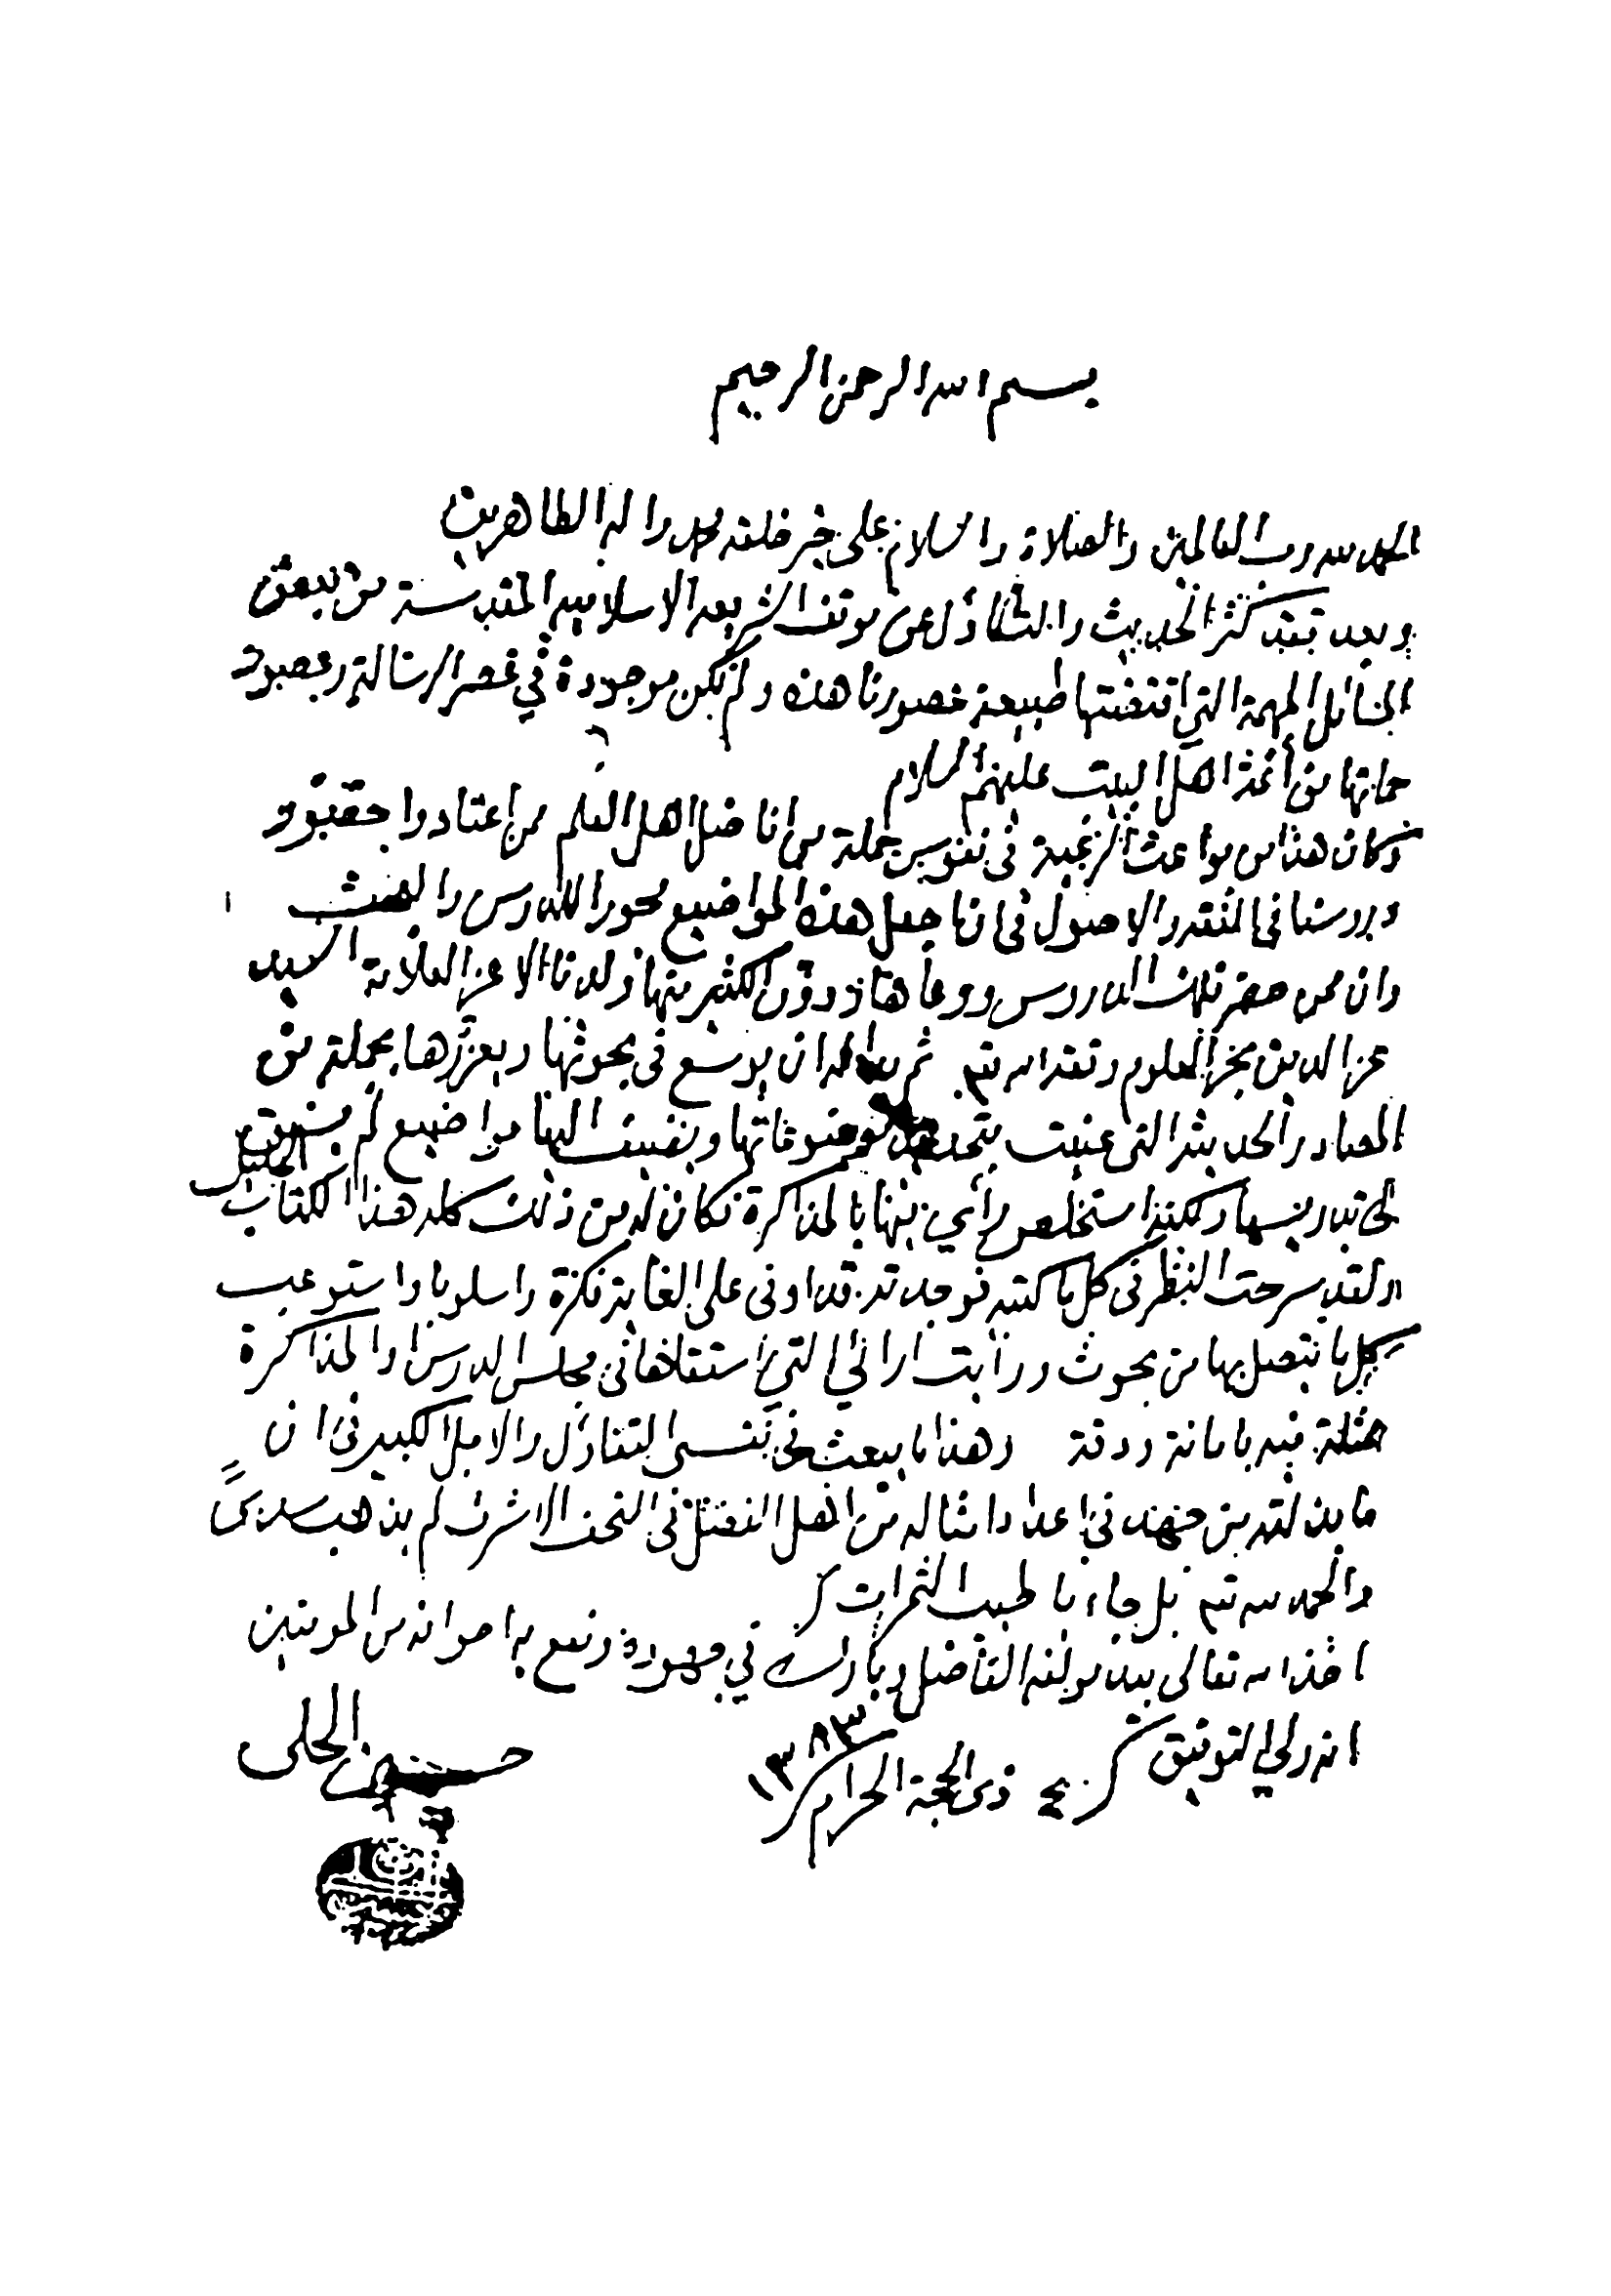 بسم الله الرحمن الرحيم
الحمد لله رب العالمين والصلاة والسلام على خير خلقه محمد واله الطاهرين
وبعد فقد كثر الحديث والتساؤل عن موقف الشريعة الاسلامية المقدسة من بعض
المسائل المهمة التي اقتضتها طبيعة عصورنا هذه ولم تكن موجودة في عصر الرسالة وعصور
حماتها من أئمة اهل البيت عليهم السلام
وكان هذا من بواعث الرغبة في نفوس جملة من افاضل اهل العلم ممن اعتادوا حضور
دروسنا في الفقه والاصول في ان اجعل هذه المواضيع محورا للدرس والبحث
وان ممن حضر تلك الدروس ووعاها ودون الكثير منها ولدنا الاعز العلامة السيد
عز الدين بحر العلوم وفقه الله تع ثم بدا له ان يوسع في بحوثها ويعززها بجملة من
المصادر الحديثة التي عنيت بتحديد موضوعاتها ويضيف اليها مواضيع لم يسبق
لي تدريسها ولكنه استخلص رأيي فيها بالمذاكرة فكان له من ذلك كله هذا الكتاب الجليل
ولقد سرحت النظر في كل ما كتبه فوجدته قد اوفى على الغاية فكرة واسلوبا واستوعب
كل ما يتصل بها من بحوث ورأيت ارائي التي استفادها في مجلس الدرس او المذاكرة
ممثلة فيه بامانة ودقة وهذا ما يبعث في نفسي التفاؤل والامل الكبير في ان
ما بذلته من جهد في اعداد امثاله من اهل الفضل في النجف الاشرف لم يذهب سدى
والحمد لله تع بل جاء باطيب الثمرات
اخذ الله تعالى بيد مولفه الفاضل وبارك في جهوده ونفع به اخوانه من المومنين
انه ولي التوفيق ذى الحجة الحرام ١٣٨٣
حسين الحلي